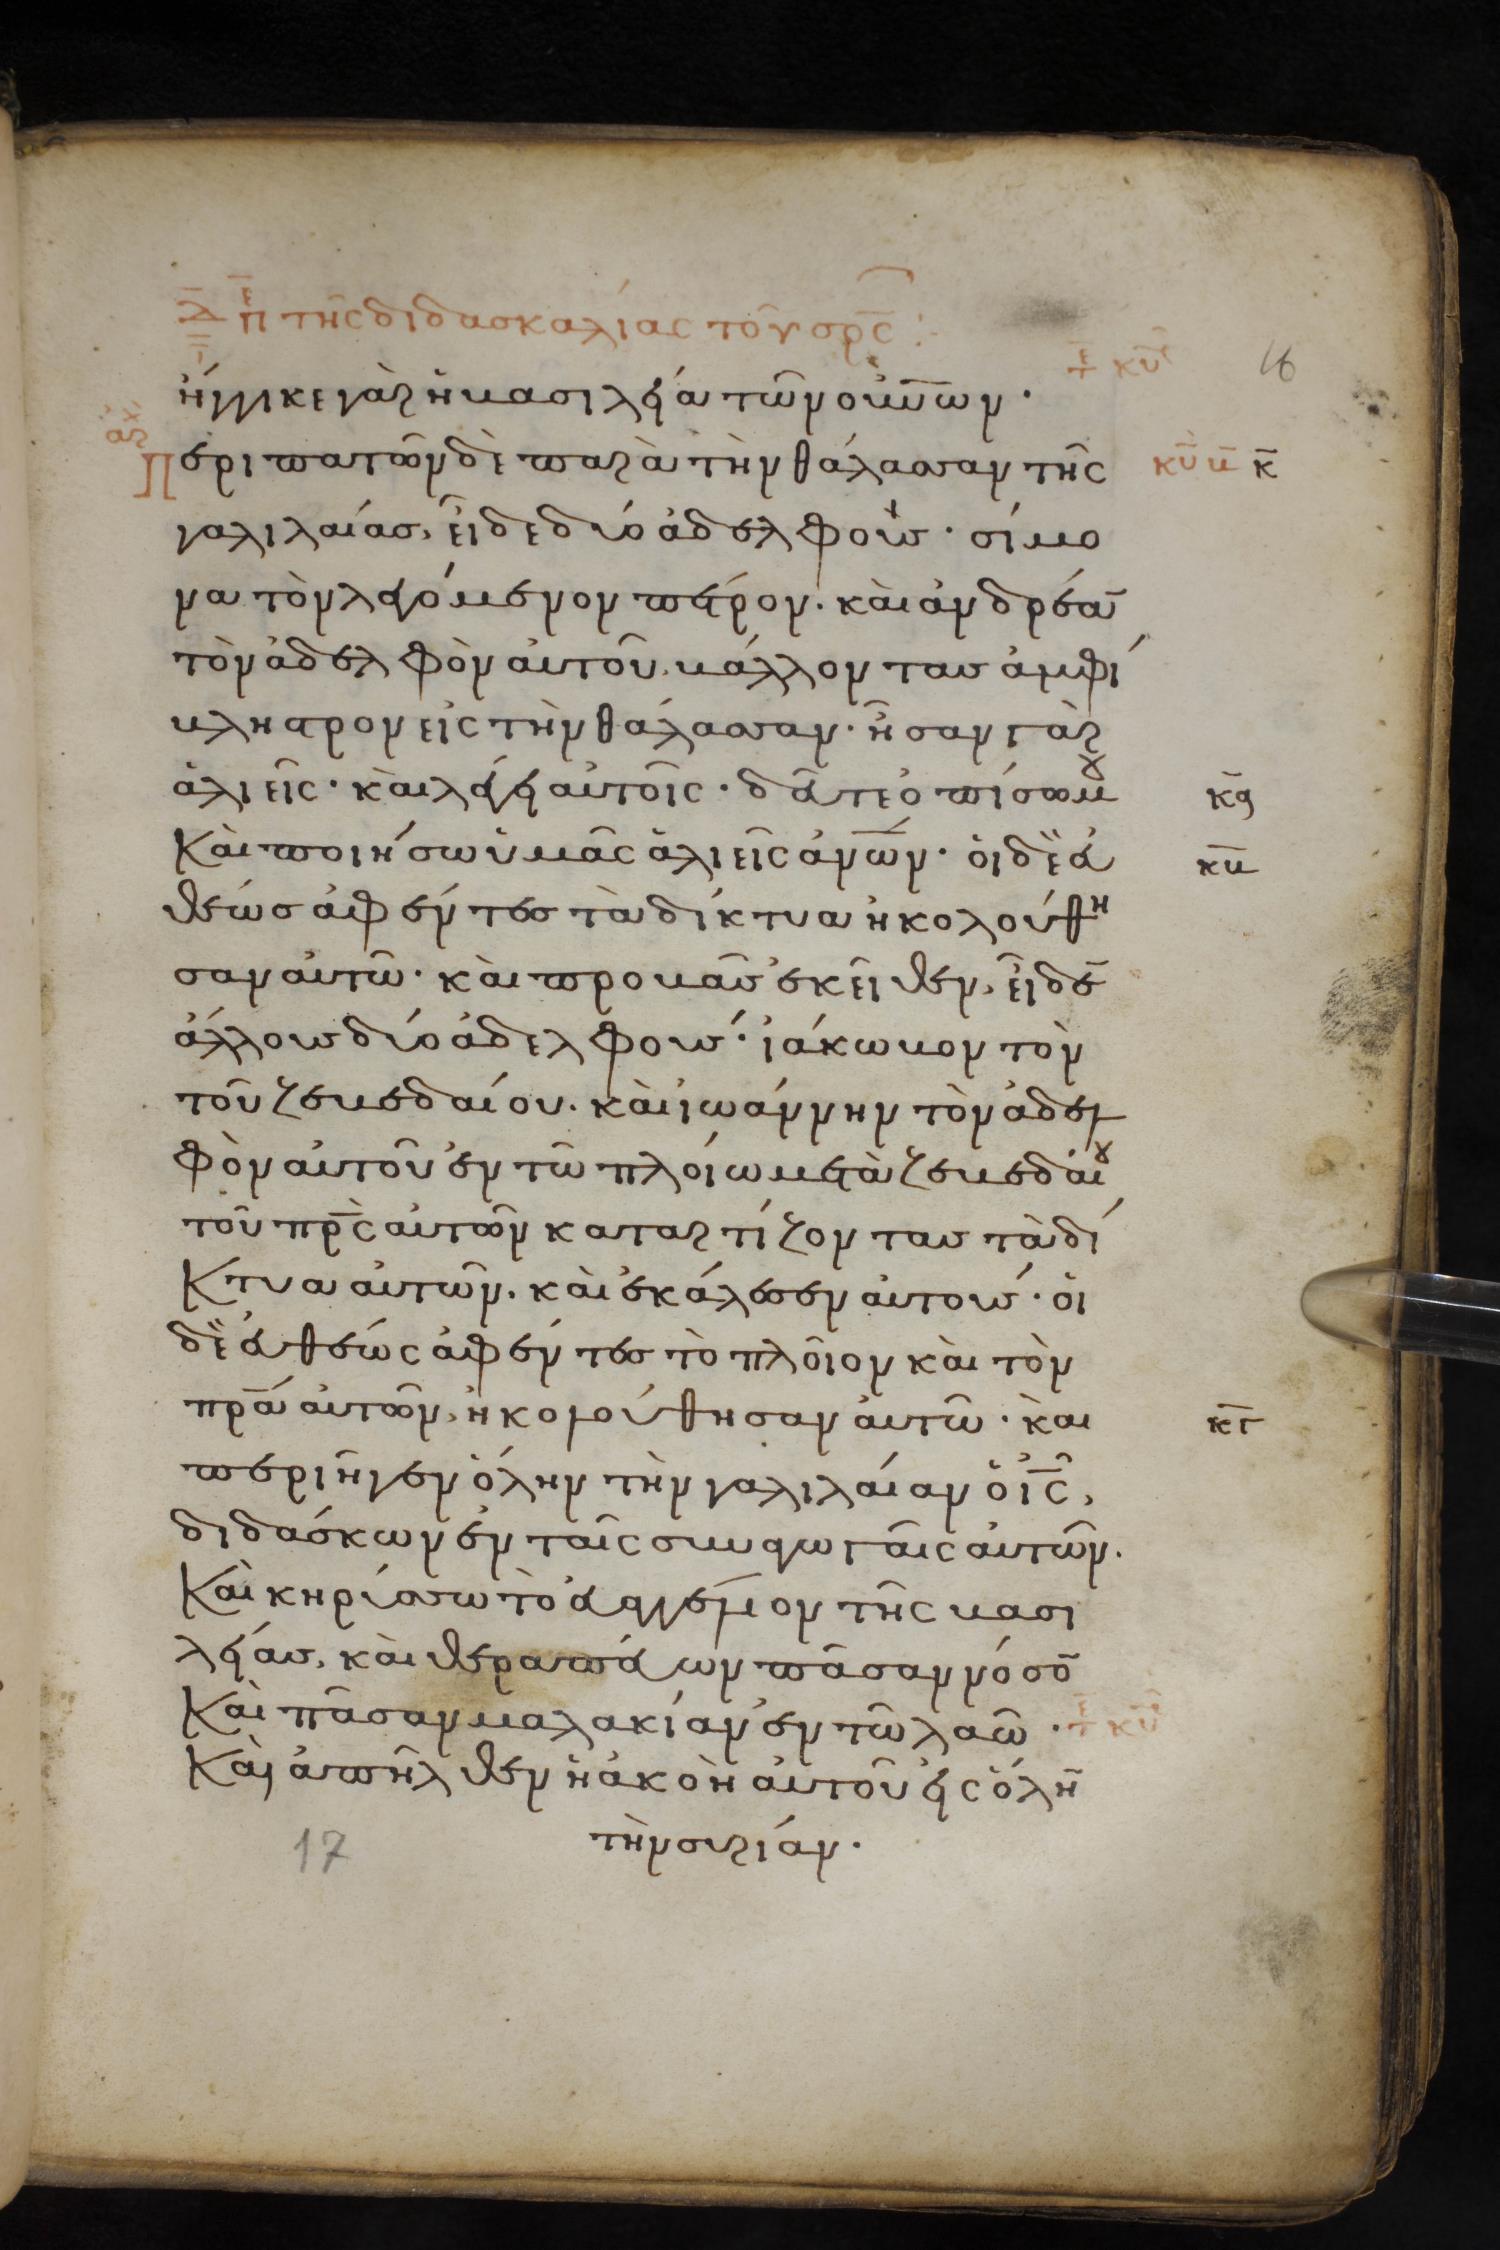 Δ̅ Πε τῆς διδασκαλίας τοῦ σρ̅ς :
τε κυ
16
ἤγγικε γὰρ ἡ βασιλεία τῶν οὐ̅νων ·
ἀρχ
Περιπατῶν δὲ παρὰ τὴν θάλασσαν τῆς
κυ β κ̅
γαλιλαίας, εἶδε δύο ἀδελφοὺς · σίμω
να τὸν λεγόμενον πέτρον · καὶ ἀνδρέα̅
τὸν ἀδελφὸν αὐτοῦ, βάλλοντας ἀμφί
βληστρον εἰς τὴν θάλασσαν · ἦσαν γὰρ
ἁλιεῖς · καὶ λέγει αὐτοῖς · δεῦτε ὀπίσω μου
κα̅
Καὶ ποιήσω ὑμᾶς ἁλιεῖς ἀν̅ων · οἱ δὲ εὐ
κβ̅
θέως ἀφέντες τὰ δίκτυα ἠκολούθη
σαν αὐτῶ · καὶ προβὰς ἐκεῖθεν, εἶδε̅
ἄλλους δύο ἀδελφούς · ἰάκωβον τὸν
τοῦ ζεβεδαίου · καὶ ἰωάννην τὸν ἀδελ
φὸν αὐτοῦ ἐν τῶ πλοίω μετὰ ζεβεδαίου
τοῦ πρ̅ς αὐτῶν καταρτίζοντας τὰ δί
κτυα αὐτῶν · καὶ ἐκάλεσεν αὐτούς · οἱ
δὲ εὐθέως ἀφέντες τὸ πλοῖον καὶ τὸν
πρ̅α αὐτῶν, ἠκολούθησαν αὐτῶ · καὶ
κγ̅
περιῆγεν ὅλην τὴν γαλιλαίαν ὁ ι̅ς,
διδάσκων ἐν ταῖς συναγωγαῖς αὐτῶν ·
Καὶ κηρύσσω τὸ εὐαγγέλιον τῆς βασι
λείας, καὶ θεραπεύων πᾶσαν νόσο̅
Καὶ πᾶσαν μαλακίαν ἐν τῶ λαῶ ·
τε κυ
Καὶ ἀπῆλθεν ἡ ἀκοὴ αὐτοῦ εἰς ὅλη̅
τὴν συρίαν ·
17